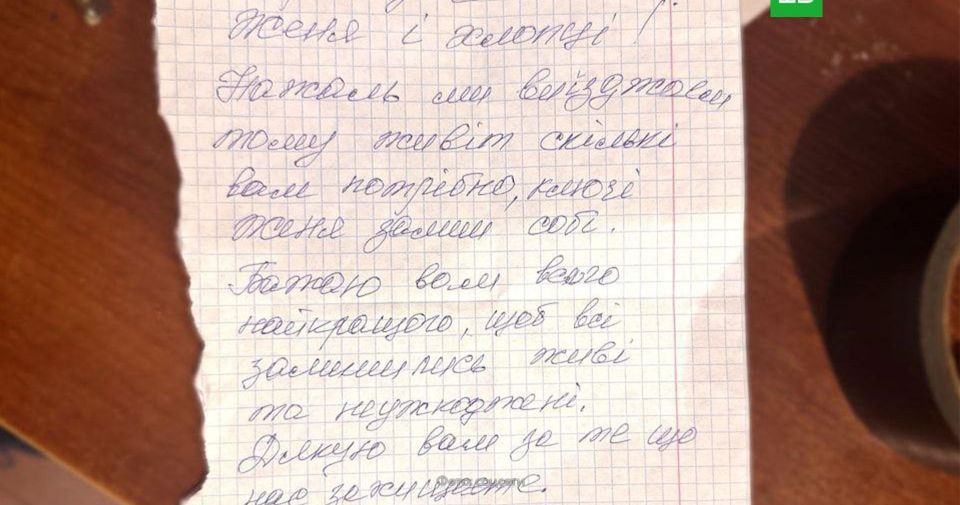 Женя і хлопці!
Нажаль ми виїзджаєм
тому живіт скількі
вам потрібно, ключі
женя залиш собі.
Бажаю вам всього
найкращого, щоб всі
залишились живі
та неужкоджені.
Дякую вам за те що
нас захищаєте.